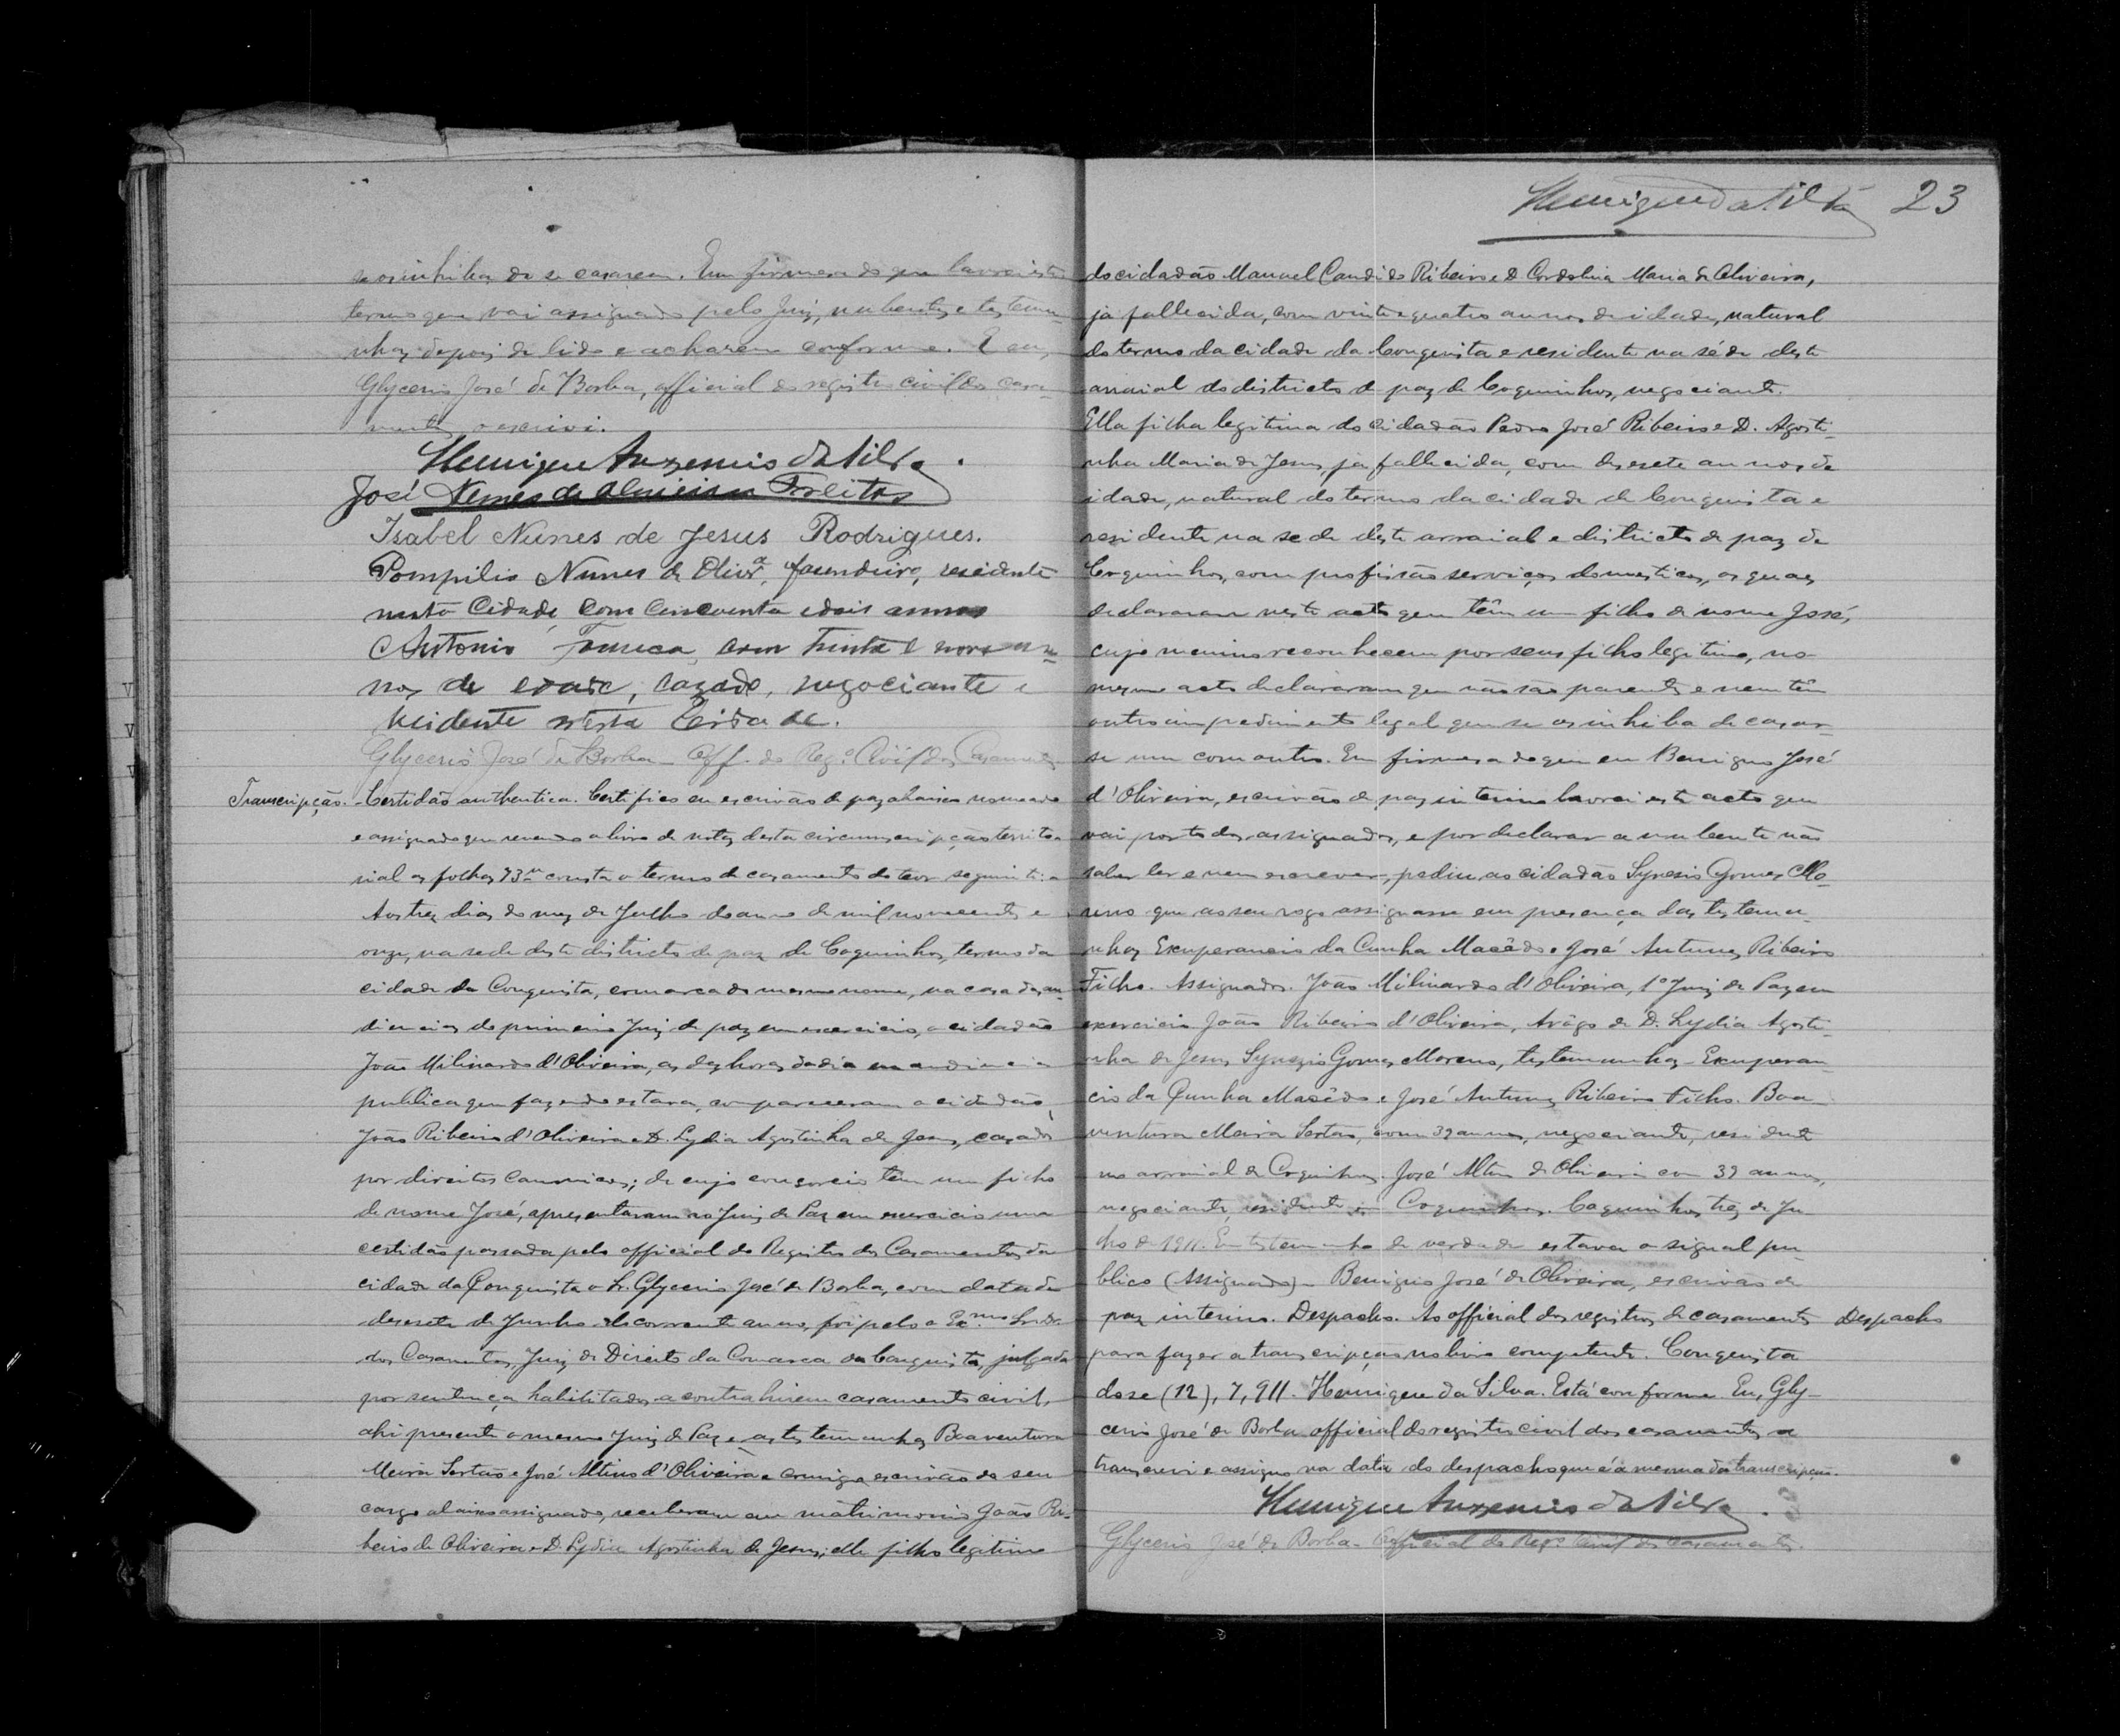 se os inhiba de se casarem. Em firmesa do que lavrei este
termo que vai assignado pelo Juiz, nubentes e testemu-
nhas, depois de lido e acharem conforme. E eu,
Glycerio José de Borba, official do registro civil dos casa-
mentos, o escrivi.
Henrique Auxencio da Silva.
José Nunes de Freitas
Isabel Nunes de Jesus Rodrigues.
Pompilio Nunes de Olivrª, fasendeiro, residente
nesta Cidade com Cincoenta e dois annos
Antonio Fonseca, com trinta e nove an-
nos de edade, cazado, negociante e
residente nesta Cidade.
Glycerio José de Borba - Off. do Regº Civil dos Casamentos
Transcripção. - Certidão authentica. Certifico eu escrivão de paz abaixo nomeado
e assignado que revendo o livro de notas desta circumscripção territo-
rial as folhas 73 consta o termo de casamento do teor seguinte:
Aos tres dias do mez de Julho do anno de mil novecentos e
onze, na sede deste districto de paz de Coquinhos, termo da
cidade da Conquista, comarca do mesmo nome, na casa das au-
diencias do primeiro Juiz de paz em exercicio, o cidadão
João Milinardo d'Oliveira, as dez horas do dia em audiencia
publica que fazendo estava, compareceram o cidadão
João Ribeiro d'Oliveira e D. Lydia Agostinha de Jesus, casados
por direitos Canonicos; de cujo consorcio têm um filho
de nome José, apresentaram ao Juiz de Paz em exercicio uma
certidão passada pelo official do Registro dos Casamentos da
cidade da Conquista o Sr. Glycerio José de Borba, com data de
desesete de Junho do corrente anno, foi pelo o Exmo Sr. Dr.
dos Casamentos, Juiz de Direito da Comarca da Conquista, julgado
por sentença habilitados a contrahirem casamento civil,
ahi presente o mesmo Juiz de Paz e as testemunhas Boaventura
Meira Sertão e José Altino d'Oliveira e comigo escrivão do seu
cargo abaixo assignado, receberam em matrimonio João Ri-
beiro de Oliveira e D. Lydia Agostinha de Jesus; elle filho legitimo
Henrique da Silva 23
do cidadão Manuel Candido Ribeiro e D. Cordolina Maria de Oliveira,
já fallecida, com vinte e quatro annos de idade, natural
do termo da cidade da Conquista e residente na séde deste
arraial do districto de paz de Coquinhos, negociante.
Ella filha legitima do cidadão Pedro José Ribeiro e D. Agosti-
nha Maria de Jesus, já fallecida, com desesete annos de
idade, natural do termo da cidade de Conquista e
residente na sede deste arraial e districto de paz de
Coquinhos, com profissão serviços domesticos, os quaes
declararam neste acto que têm um filho de nome José,
cujo menino reconhecem por seu filho legitimo, no
mesmo acto declararam que não são parentes e nem têm
outro impedimento legal que se os inhiba de casar-
se um com outro. Em firmesa do que eu Benigno José
d'Oliveira, escrivão de paz interino lavrei este acto que
vai por todos assignados, e por declarar a nubente não
saber ler e nem escrever, pediu ao cidadão Synesio Gomes Mo-
reno que ao seu rogo assignasse em presença das testemu-
nhas Exuperancio da Cunha Macêdo e José Antunes Ribeiro
Filho. Assignados. João Milinardo d'Oliveira, 1º Juiz de Paz em
exercicio João Ribeiro d'Oliveira, A rôgo de D. Lydia Agosti-
nha de Jesus Synesio Gomes Moreno, testemunhas - Exuperan-
cio da Cunha Macêdo e José Antunes Ribeiro Filho. Boa-
ventura Meira Sertão, com 39 annos, negociante, residente
no arraial de Coquinhos. José Altino de Oliveira com 39 annos,
negociante, residente em Coquinhos. Coquinhos, tres de Ju-
lho de 1911. Em testemunho de verdade estava o signal pu-
blico (Assignado) - Benigno José de Oliveira, escrivão de
paz interino. Despacho. Ao official dos registros de casamento Despacho
para fazer a transcripção no livro competente. Conquista
dose (12), 7, 911. Henrique da Silva. Está conforme. Eu, Gly-
cerio José de Borba official do registro civil dos casamentos a
transcrevi e assigno na data do despacho que é a mesma da transcripção.
Henrique Auxencio da Silva.
Glycerio José de Borba - Official do Regº Civil dos Casamentos.